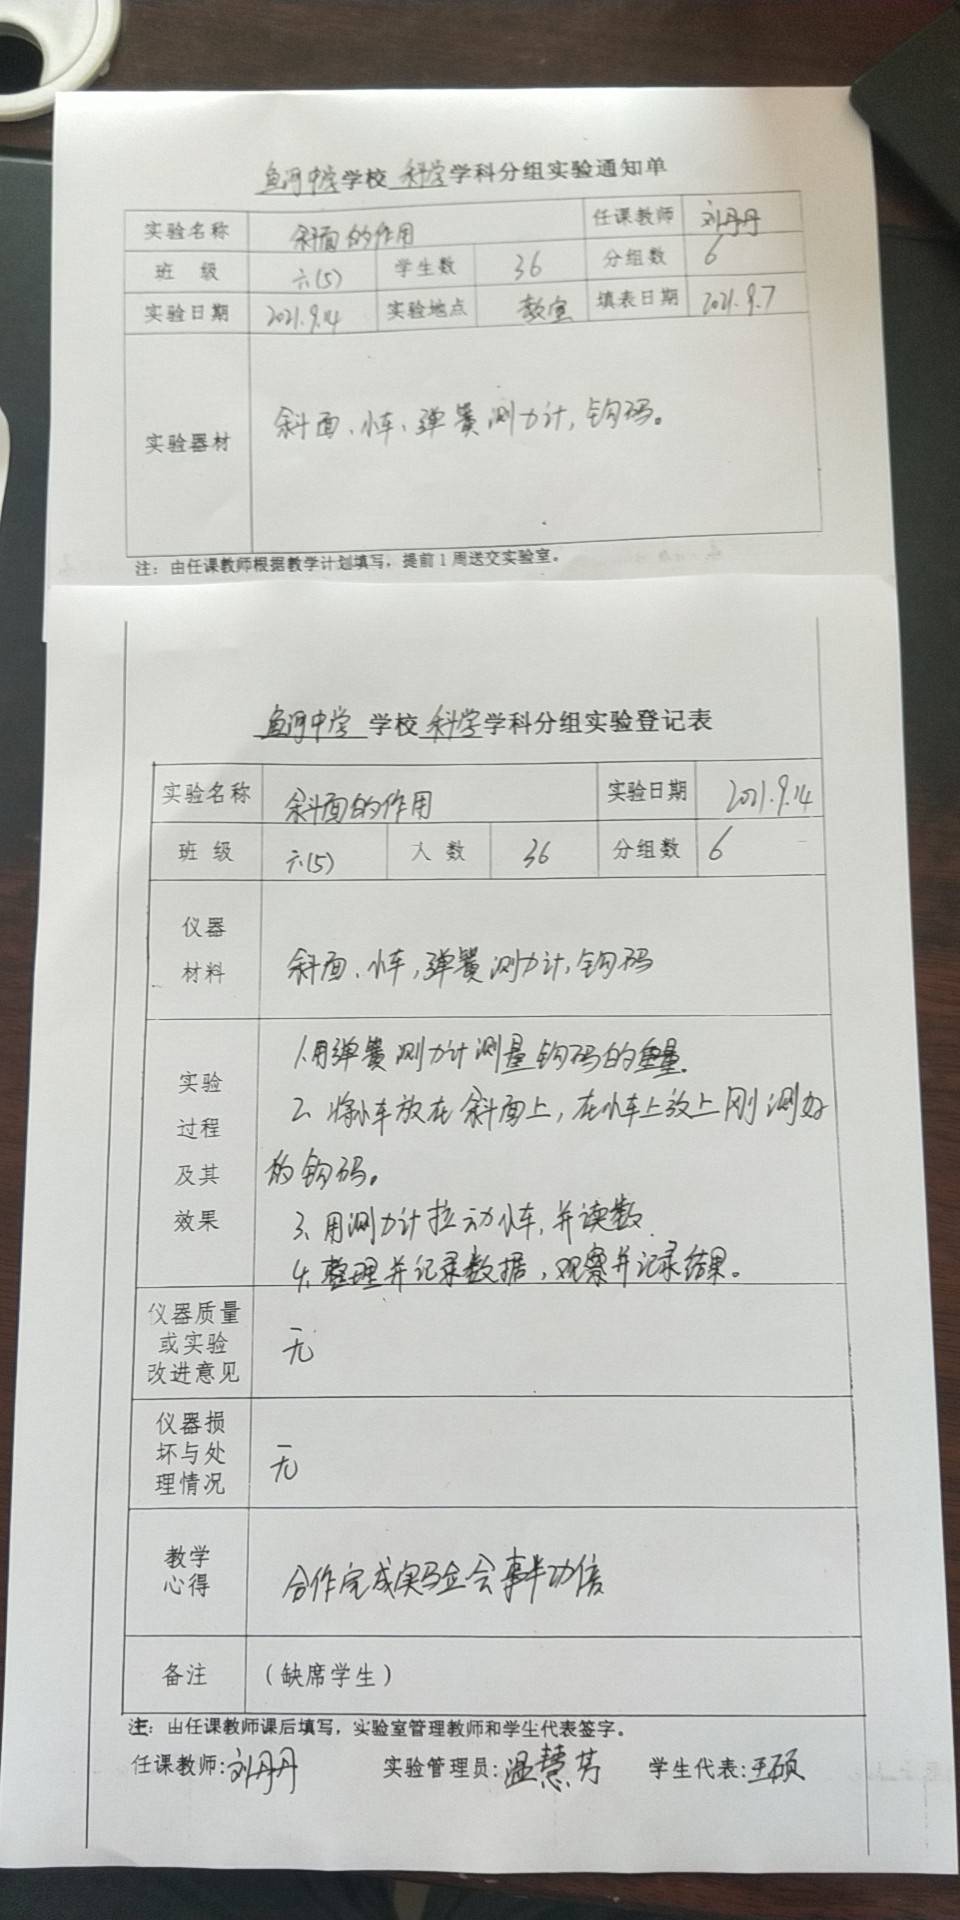 鱼河中学学校 科学学科分组实验通知单
实验名称 斜面的作用 任课教师 刘丹丹
班 级 六(5) 学生数 36 分组数 6
实验日期 2021.9.14 实验地点 教室 填表日期 2021.9.7
实验器材 斜面、小车、弹簧测力计,钩码。
注：由任课教师根据教学计划填写，提前1周送交实验室。
鱼河中学 学校 科学学科分组实验登记表
实验名称 斜面的作用 实验日期 2021.9.14
班 级 六(5) 人 数 36 分组数 6
仪器
材料 斜面、小车,弹簧测力计,钩码
实验
过程
及其
效果
1.用弹簧测力计测量钩码的重量.
2、将小车放在斜面上,在小车上放上刚测好
的钩码。
3、用测力计拉动小车,并读数.
4.整理并记录数据,观察并记录结果。
仪器质量
或实验
改进意见 无
仪器损
坏与处
理情况 无
教学
心得 合作完成实验会事半功倍
备注 （缺席学生）
注：由任课教师课后填写，实验室管理教师和学生代表签字。
任课教师:刘丹丹 实验管理员:温慧芳 学生代表:王硕